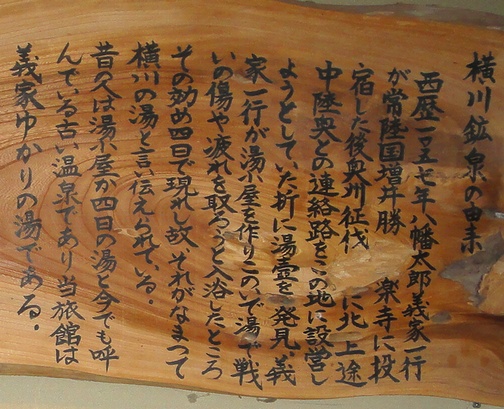 横川鉱泉の由来
西歴一〇五七年八幡太郎義家一行
が常陸国増井勝 楽寺に投
宿した後奥州征伐 に北上途
中陸奥との連絡路をこの地に設営し
ようとしていた折に湯霊を発見義
家一行が湯小屋を作りこのいで湯で戦
いの傷や疲れを取ろうと入浴したところ
その効め四日で現れし故それがなまって
横川の湯と言い伝えられている。
昔の人は湯小屋か四日の湯と今でも呼
んでいる古い温泉であり当旅館は
義家ゆかりの湯である。